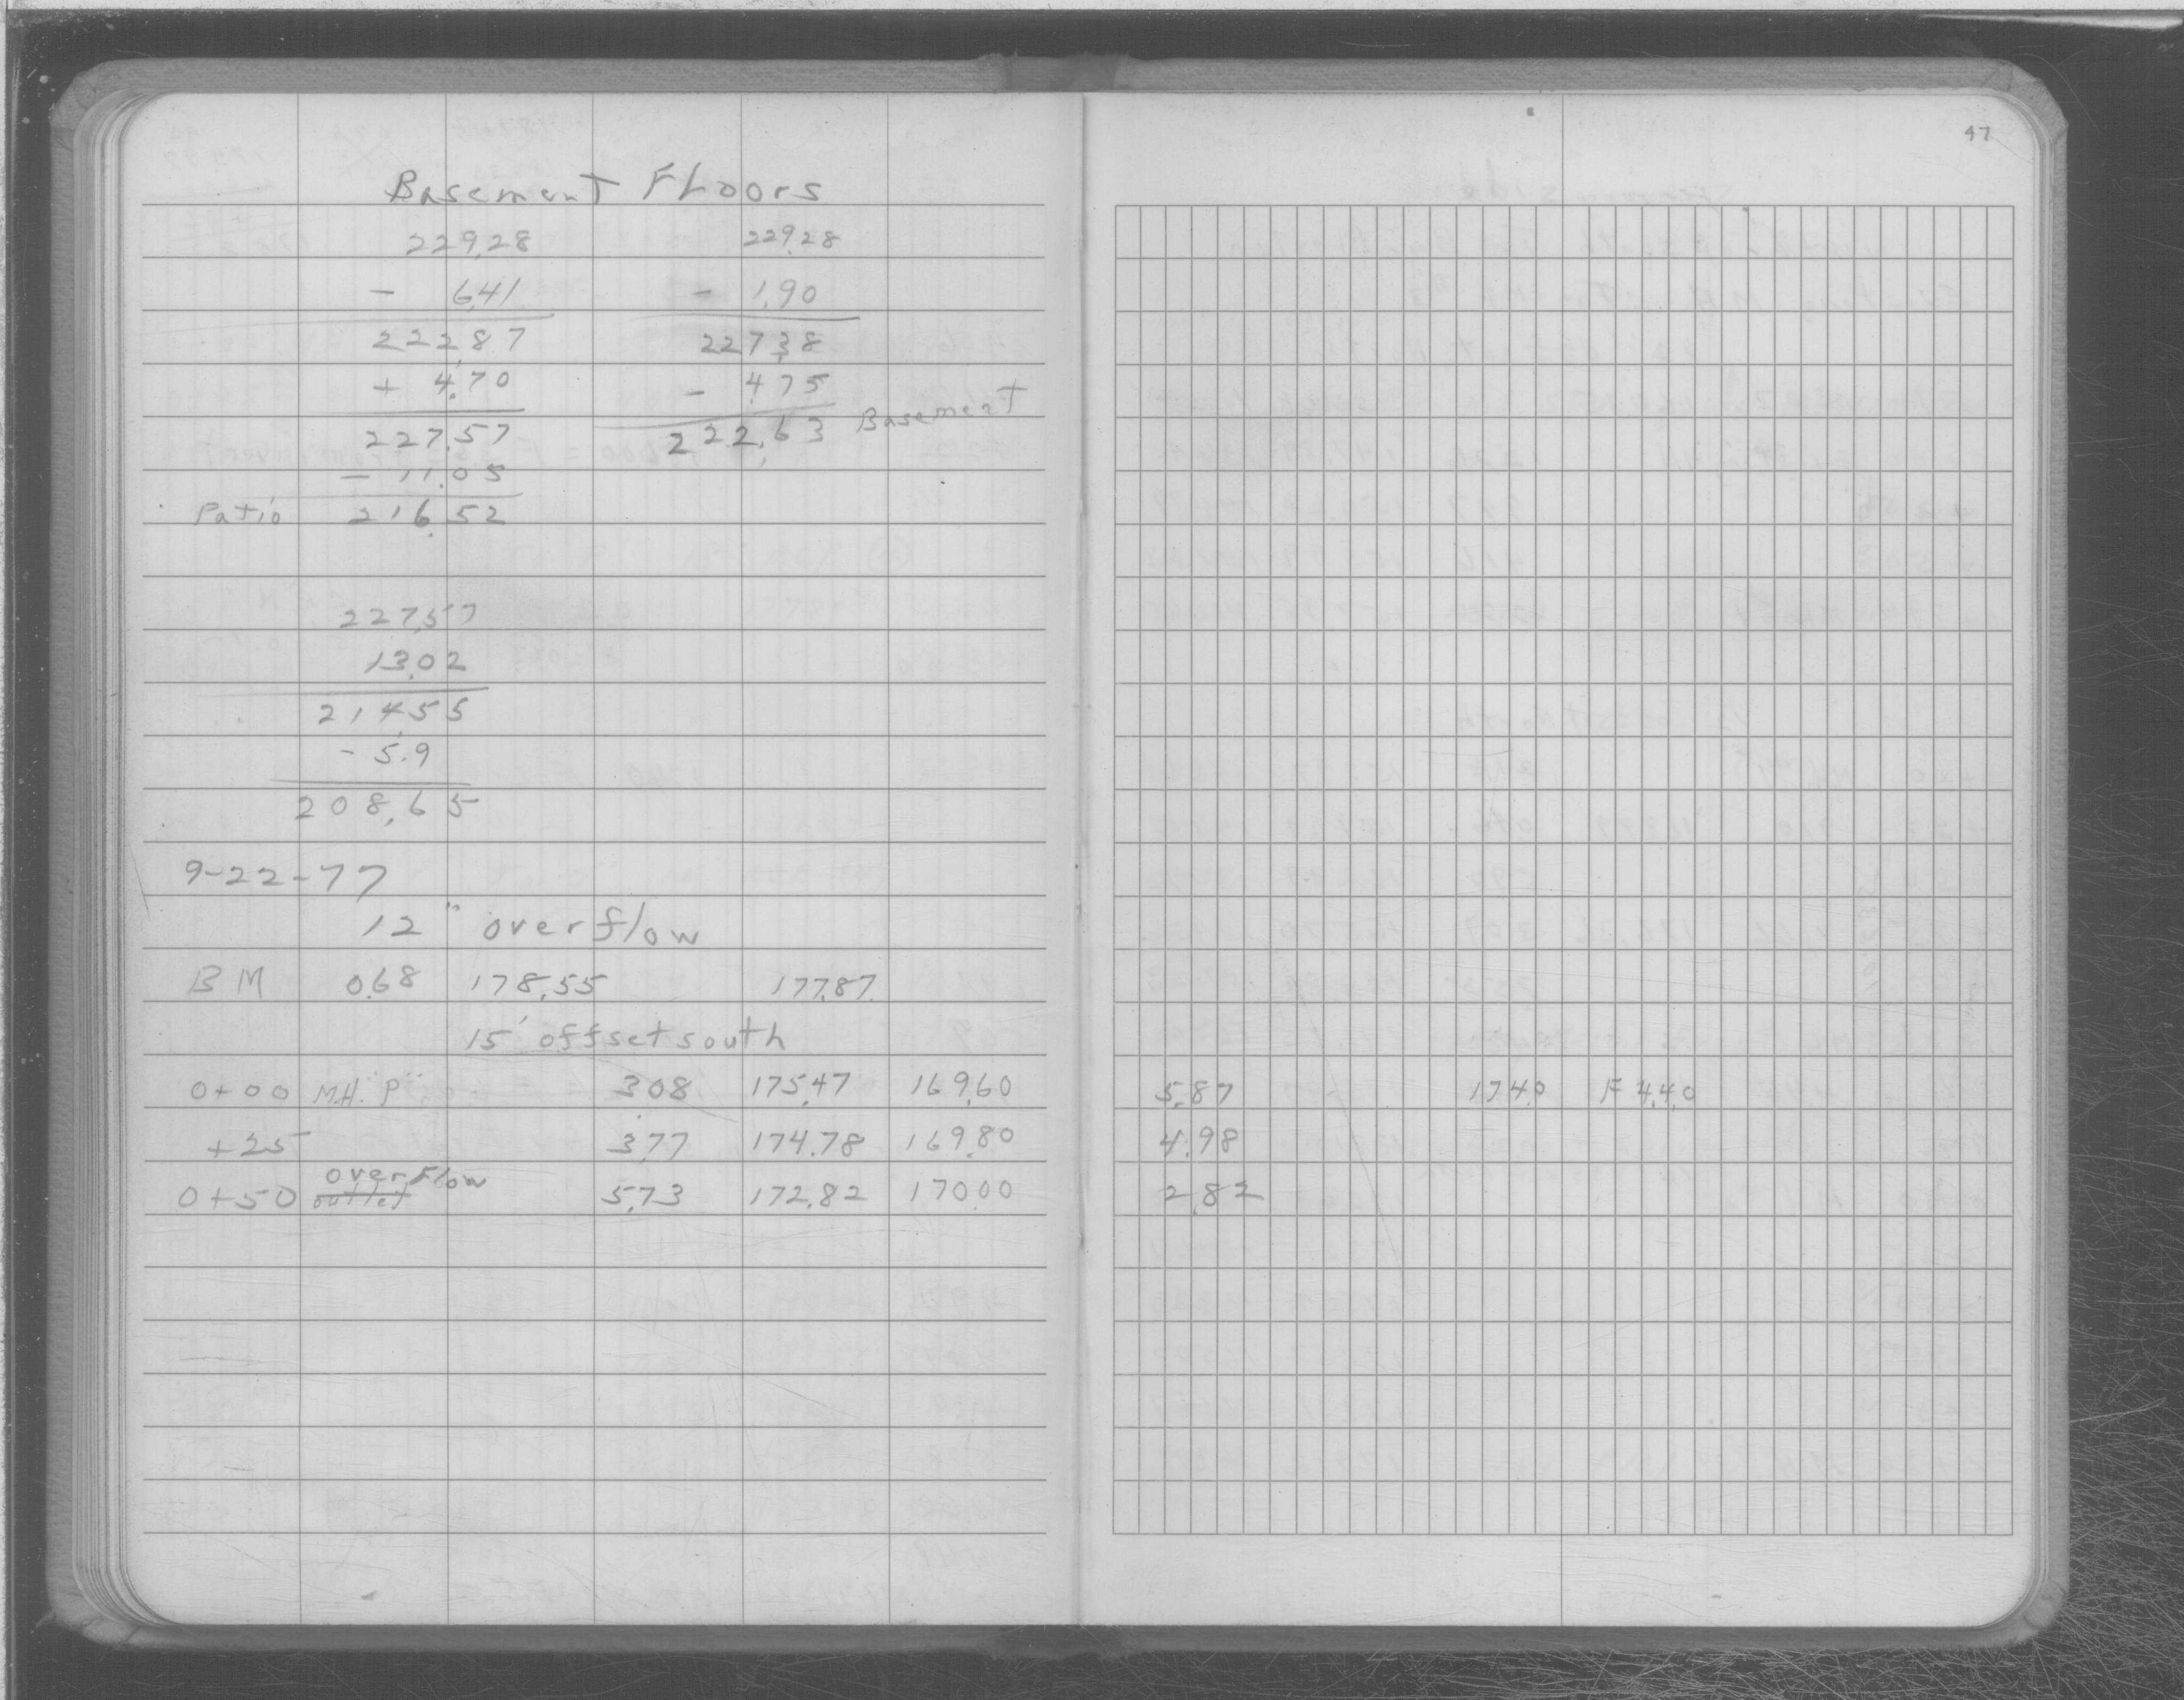 47
Basement FLoors
229.28 229.28
- 6.41 - 1.90
222.87 227.38
+ 4.70 - 4.75
227.57 222.63 Basement
- 11.05
Patio 216.52
227.57
13.02
214.55
- 5.9
208.65
9-22-77
12" overflow
BM 0.68 178.55 177.87
15' offset south
0+00 M.H. "P" 3.08 175.47 169.60 5.87 174.0 F 4.40
+25 3.77 174.78 169.80 4.98
overFlow
0+50 outlet 5.73 172.82 170.00 2.82